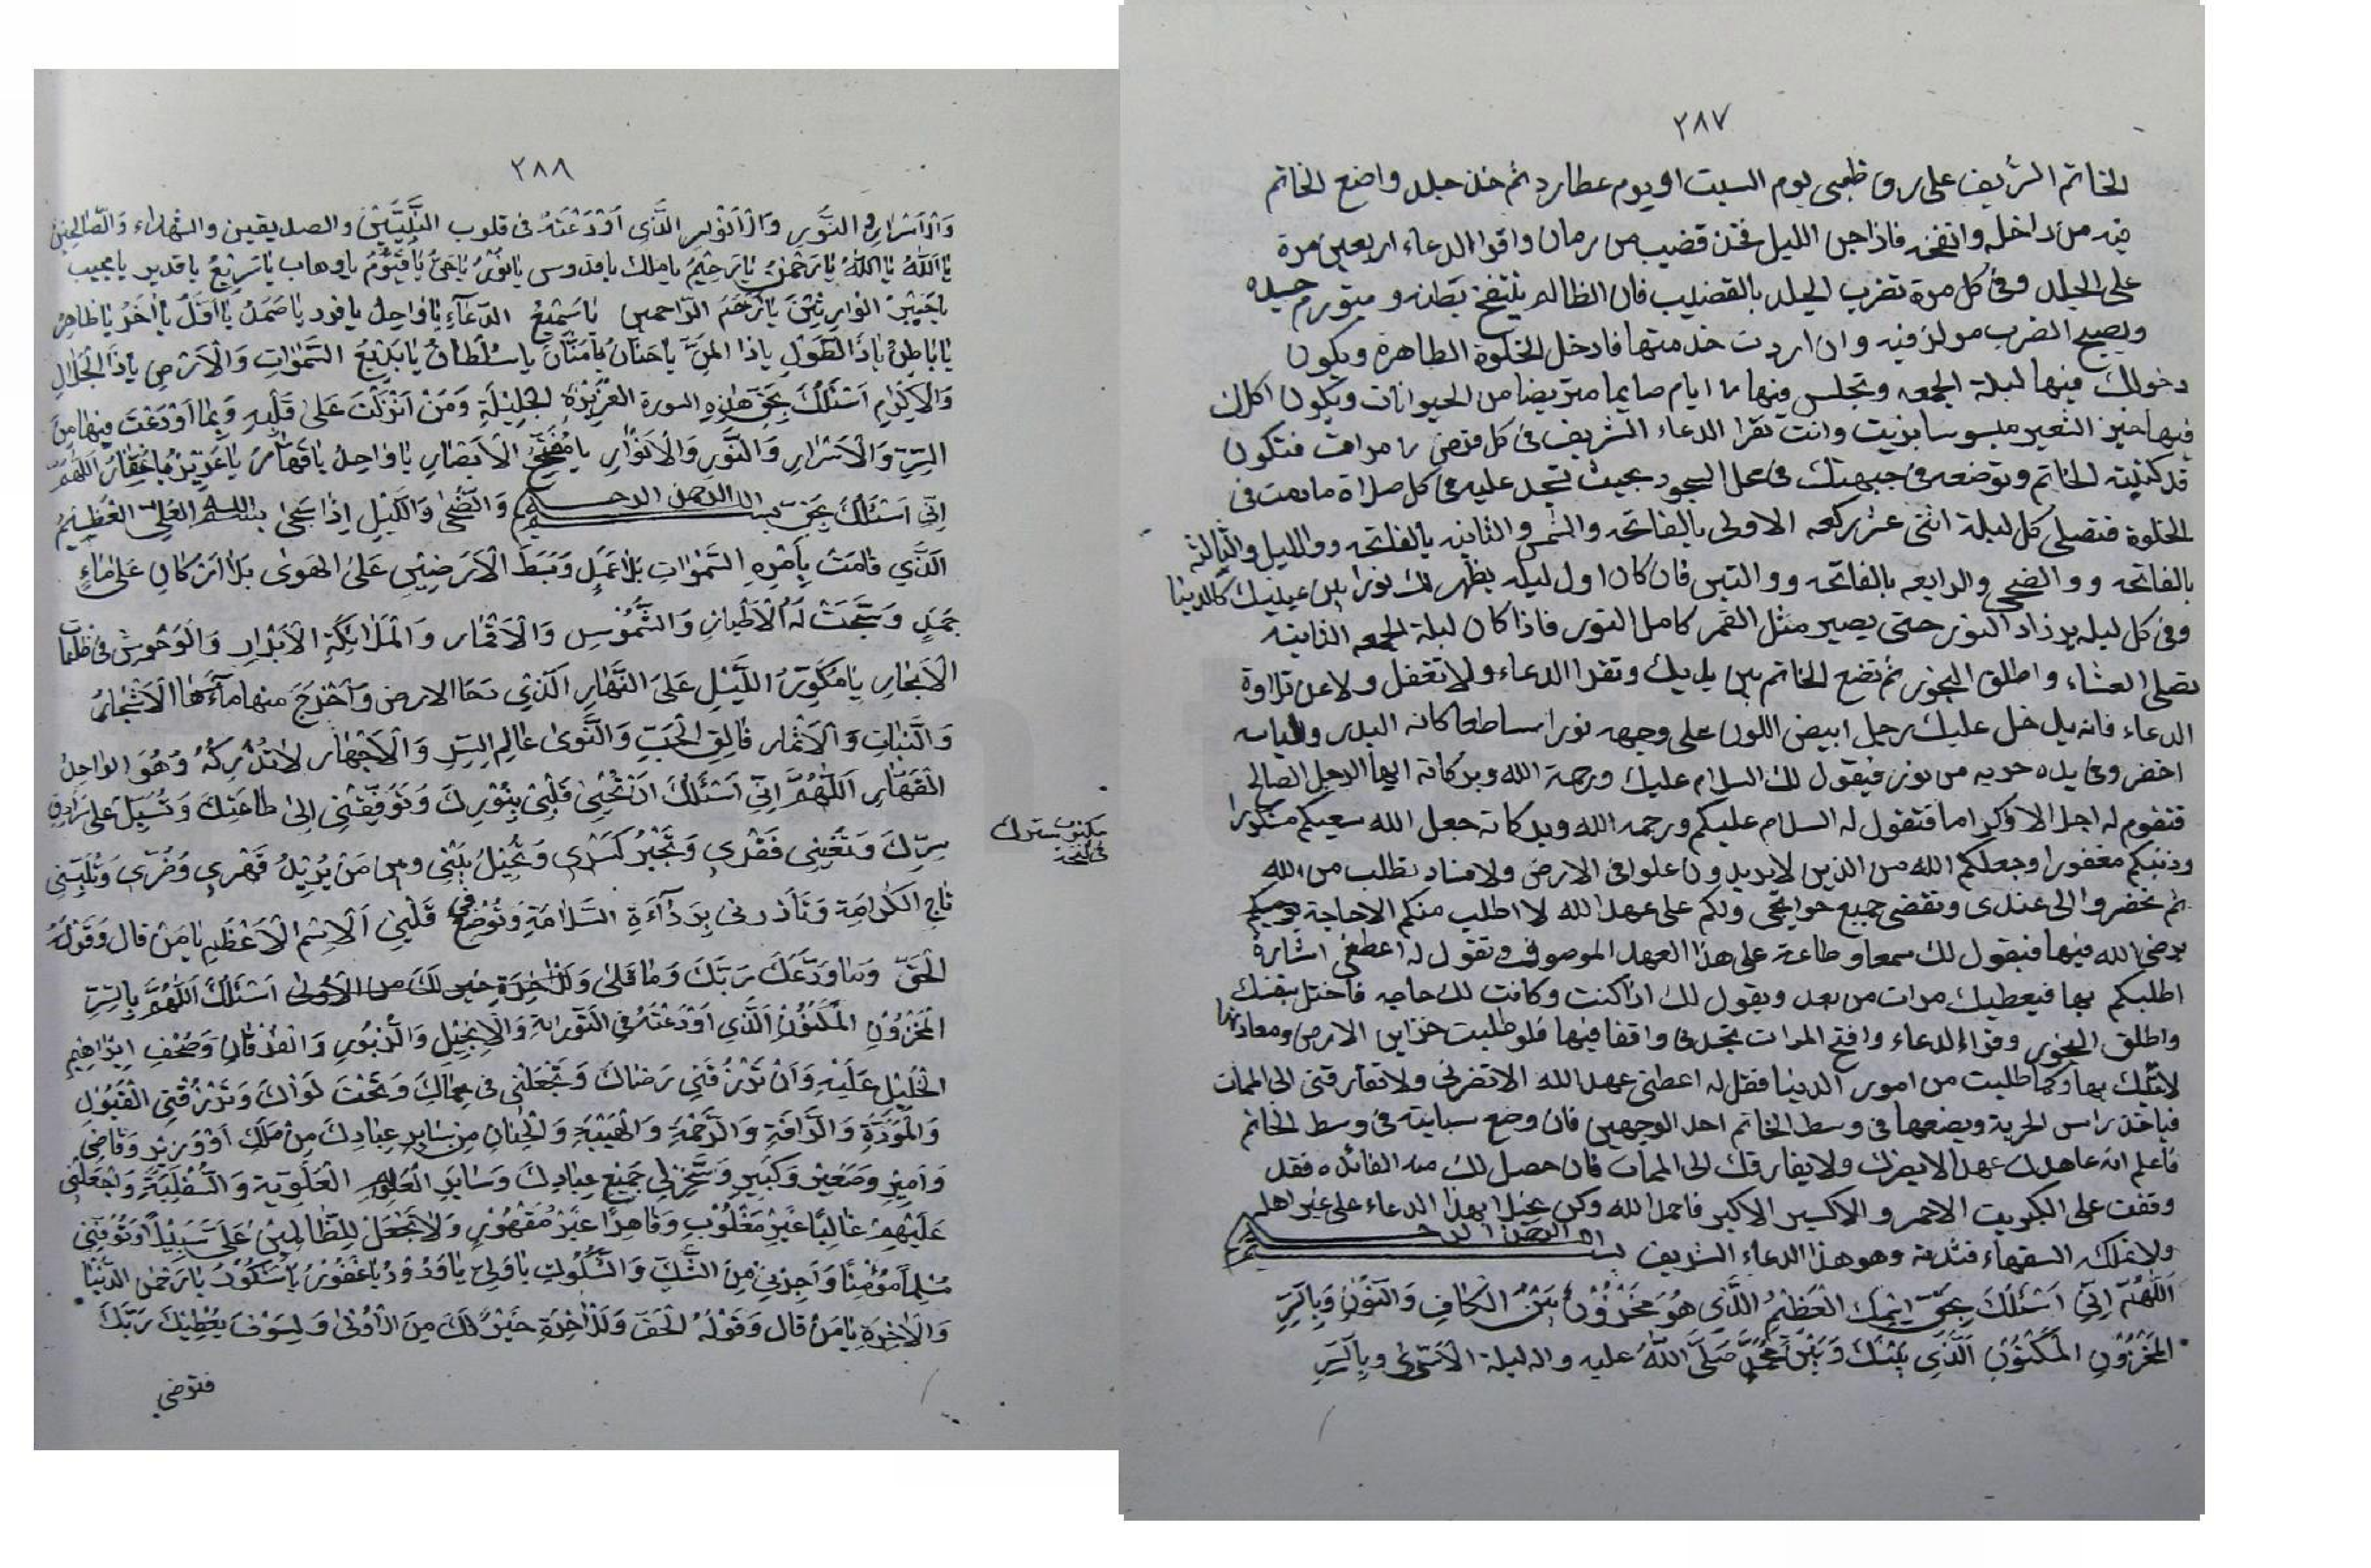 ٢٨٧
الخاتم الشريف على رق ظبى يوم السبت او يوم عطارد ثم خذ جلد واضع الخاتم
فيه من داخله وانفخه فاذا جن الليل فخذ قضيب من رمان واقرا الدعاء اربعين مرة
على الجلد وفى كل مرة تضرب الجلد بالقضيب فان الظالم ينتفخ بطنه ويتورم جسده
ويصيح الضرب مولز فيه وان اردت خدمتها فادخل الخلوة الطاهرة ويكون
دخولك فيها ليلة الجمعه وتجلس فيها ايام صايما متريضا من الحيوانات ويكون اكلك
فيها خبز الشعير بزيت وانت تقرا الدعاء الشريف فى كل فرض مرات فتكون
قد كتبته الخاتم وتوضعه فى جبهتك فى محل السجود بحيث تسجد عليه فى كل صلاة مادمت فى
الخلوة فتصلى كل ليلة اثنى عشر ركعه الاولى بالفاتحه والشمس والثانيه بالفاتحه ووالليل والثالثه
بالفاتحه ووالضحى والرابعه بالفاتحه ووالتين فان كان اول ليله يظهر لك نورا بين عينيك كالدينا
وفى كل ليله يزداد النور حتى يصير مثل القمر كامل النور فاذا كان ليلة الجمعه الثانيه
تصلى العشاء واطلق البخور ثم تضع الخاتم بين يديك وتقرا الدعاء ولا تغفل ولا عن تلاوة
الدعاء فانه يدخل عليك رجل ابيض اللون على وجهه نورا ساطعا كانه البدر ولباسه
اخضر وفى يده حربه من نور فيقول لك السلام عليك ورحمة الله وبركاته ايها الرجل الصالح
فتقوم له اجلالا وكراما فتقول له السلام عليكم ورحمه الله وبركاته جعل الله سعيكم مشكورا
وذنبكم مغفورا وجعلكم الله من الذين لا يريدون علوا فى الارض ولا فساد نطلب من الله
ثم تحضروا الى عندى وتقضى جميع حوايجى ولكم على عهد الله لا اطلب منكم الا حاجة
يرضى الله فيها فيقول لك سمعا وطاعة على هذا العهد الموصوف وتقول له اعطنى اشارة
اطلبكم بها فيعطيك مرات من بعد ويقول لك اذا كنت وكانت لك حاجه فاختل بنفسك
واطلق البخور وقراء الدعاء وافتح المرات تجدنى واقفا فيها فلو طلبت خزاين الارض ومعادنها
لاتتك بها وكما طلبت من امور الدنيا فقل له اعطنى عهد الله الا تضرنى ولا تفارقنى الى الممات
فياخذ راس الحربة ويضعها فى وسط الخاتم احد الوجهين فان وضع سبابته فى وسط الخاتم
فاعلم انه عاهدك عهدا لا يضرك ولا يفارقك الى الممات فان حصل لك منه الفائده فقد
وقفت على الكبريت الاحمر والاكسير الاكبر فاحمد الله وكن بخيلا بهذا الدعاء على غير اهله
ولا تملكه السفهاء فتندم وهو هذا الدعاء الشريف بسم الله الرحمن الرحيم
اَللّٰهُمَّ اِنِّى اَسْئَلُكَ بِحَقِّ اِسْمِكَ الْعَظِيْمِ الَّذِى هُوَ مَخْزُوْنٌ بَيْنَ الْكَافِ وَالنُّوْنِ وَبِالسِّرِّ
الْمَخْزُوْنِ الْمَكْنُوْنِ الَّذِى بَيْنَكَ وَبَيْنَ مُحَمَّدٍ صَلَّى اللّٰهُ عليه واله ليلة الْاَسْرٰى وبِالسِّرِّ
٢٨٨
وَالْاَسْرَارِ وَ النُّوْرِ وَالْاَنْوٰرِ الَّذِى اَوْدَعْتَهُ فى قلوب النَّبِيِّيْنَ والصديقين والشهداء وَالصّٰالِحِيْنَ
يٰا اَللّٰهُ يٰا اَللّٰهُ يٰا رَحْمٰنُ يٰا رَحِيْمُ يا ملك يا قدوس يا نُوْرُ يٰا حَىُّ يٰا قَيُّوْمُ يا وهاب يا سَرِيْعُ يا قدير يا مجيب
يا خَيْرَ الْوارِثِيْنَ يٰا اَرْحَمَ الرّٰاحمين يا سَمِيْعَ الدُّعَآءِ يٰا وٰاحِدُ يا فرد يا صَمَدُ يا اَوَّلُ يا اٰخِرُ يا ظاهِرُ
يٰا بٰاطِنُ يٰا ذَالطَّوْلِ يا ذا المَنِّ يا حَنَّانُ يٰا مَنّٰانُ يا سُلْطٰانُ يٰا بَدِيْعَ السَّمٰوٰاتِ وَالْاَرْضِ يٰا ذَا الْجَلٰالِ
وَالْاِكْرٰامِ اَسْئَلُكَ بِحَقِّ هٰذِهِ السورة الْعَزِيْزَةِ الجَلِيْلَةِ وَمَنْ اَنْزَلْتَ عَلىٰ قَلْبِهِ وَبِمٰا اَوْدَعْتَ فِيْهٰا مِنَ
السِّرِّ وَالْاَسْرٰارِ وَالنُّوْرِ وَالْاَنْوٰارِ يا مُفَتِّحَ الْاَبْصٰارِ يا وٰاحِدُ يا قَهّٰارُ يا عَزِيْزُ يٰا غَفّٰارُ اَللّٰهُمَّ
اِنِّى اَسْئَلُكَ بِحَقِّ بسم الله الرحمن الرحيم وَالضُّحىٰ وَاللَّيْلِ اِذٰا سَجىٰ بسم الله الْعَلِىِّ الْعَظِيْمُ
اَلَّذِي قٰامَتْ بِاَمْرِهِ السَّمٰوٰاتِ بِلٰا عَمَدٍ وَبَسَطَ الْاَرَضِيْنَ عَلىَ الهَوىٰ بِلٰا اَرْكٰانٍ عَلىٰ مٰاءٍ
جَمَدٍ وَسَبَّحَتْ لَهُ الْاَطْيٰارُ وَالشُّمُوْسِ وَالْاَقْمٰار وَالْمَلٰائِكَةِ الْاَبْرٰارِ وَالْوُحُوْشِ فى ظلمات
الْاَبْحٰارِ يٰا مُكَوِّرَ اللَّيْلِ عَلىَ النَّهٰارِ الَّذِي دَحَا الارض وَاَخْرَجَ منها مٰآءَهٰا الْاَشْجٰارُ
وَالنَّبٰاتِ وَالْاَثْمٰارِ فٰالِقِ الْحَبِّ وَالنَّوىٰ عٰالِمِ السِّرِّ وَالْاَجْهٰارِ لٰا تُدْرِكُهُ وَهُوَ الوٰاحِدُ
الْقَهّٰارِ اَللّٰهُمَّ اِنِّى اَسْئَلُكَ اَنْ تُحْيِىَ قَلْبِىْ بِنُوْرِكَ وَتُوَفِّقَنِى اِلىٰ طٰاعَتِكَ وَتُسْبِلَ عَلىَّ سُرٰادِقِ
سِرِّكَ وَتُغْنِى فَقْرِى وَتَجْبُرَ كَسْرِى وَتُحِيْلَ بَيْنِى وبين مَنْ يُرِيْدُ قَهْرِى وَضُرِّى وَتُلَبِّسَنِى
مكتوب سترك
فى نسخة
تٰاجِ الْكَرٰامَةِ وَتَأزرنى بِرِدٰآءَةِ السَّلٰامَةِ وَتُوْضِعَ فى قَلْبِىْ اَلْاِسْمِ الْاَعْظَمِ يٰا مَنْ قال وَقَوْلُهُ
الْحَقُّ وَمٰا وَدَّعَكَ رَبُّكَ وَمٰا قَلٰى وَلَلْاٰخِرَةِ خير لَكَ من الْاُوْلىٰ اَسْئَلُكَ اَللّٰهُمَّ بِالسِّرِّ
الْمَخْزُوْنِ الْمَكْنُوْنِ الَّذِي اَوْدَعْتَهُ فِى التَّوْرٰاةِ وَالْاِنْجِيْلِ وَالزَّبُوْرِ وَالْفُرْقٰانِ وَصُحُفِ اِبْرٰاهِيْمَ
الْخَلِيْلِ عَلَيْهِ وَاَنْ تَرْزُقَنِي رَضٰاكَ وَتَجْعَلَنِى فى حِمٰاكَ وَتَحْتَ لِوٰاكَ وَتَرْزُقَنِى الْقَبُوْلِ
وَالْمَوَدَّةِ وَالرَّافَةِ وَالرَّحْمَةِ وَالْهَيْبَةِ وَالْحَنٰانِ مِنْ سٰايِرِ عِبٰادِكَ مِنْ مَلَكِ اَوْ وَزِيْرٍ وَقٰاضِى
وَاَمِيْرٍ وَصَغِيْرٍ وَكَبِيْرٍ وَسَخِّرْ لِي جَمِيْعِ عِبٰادِكَ وَسٰايِرَ الْعَوٰالِمِ الْعُلْوِيَّةِ وَالسُّفْلِيَّةِ وَاجْعَلْنِى
عَلَيْهِمْ غٰالِبًا غَيْرَ مَغْلُوْبٍ وَقٰاهِرًا غَيْرَ مَقْهُوْرٍ وَلٰا تَجْعَلْ لِلظّٰالِمِيْنَ عَلَىَّ سَبِيْلًا وَتُوَفَّنِى
مُسْلِمًا مُؤْمِنًا وَاَجِرْنِى مِنَ الشَّكِّ وَالشُّكُوْكِ يا وَلِىُّ يٰا وَدُوْدُ يٰا غَفُوْرُ يٰا شَكُوْرُ يٰا رَحْمٰنَ الدُّنْيٰا
وَالْاٰخِرَةِ يٰا مَنْ قال وَقَوْلُهُ الْحَقُّ وَلَلْاٰخِرَةِ خَيْرٌ لَكَ مِنَ الْاُوْلىٰ وَلَسَوْفَ يُعْطِيْكَ رَبُّكَ
فترضى